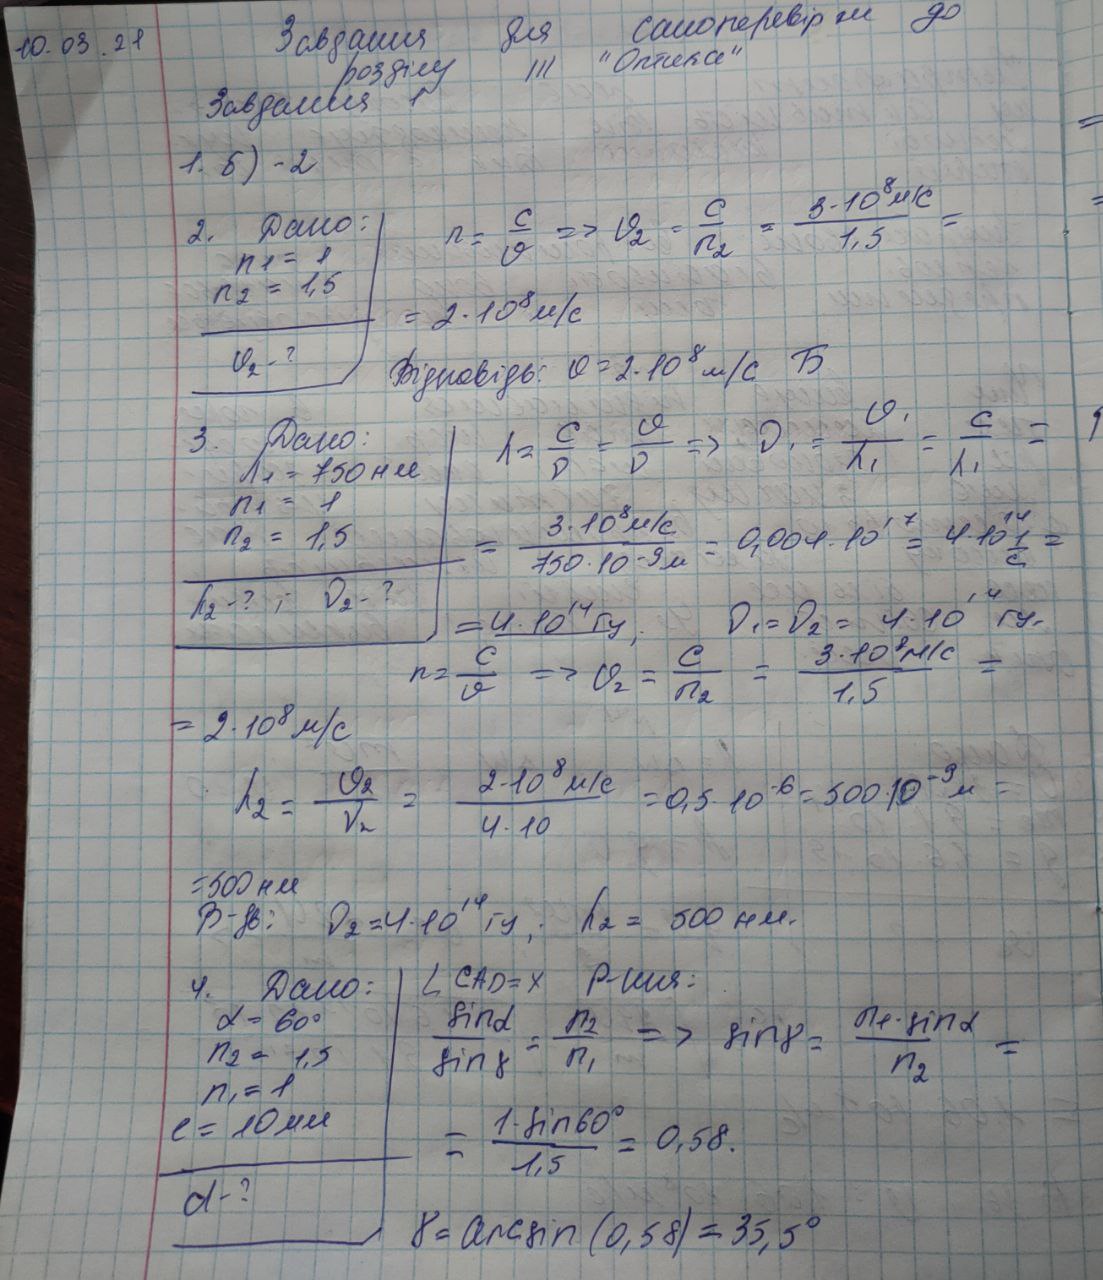 10.03.21
Завдання для самоперевірки до
розділу III "Оптика"
Завдання 1
1. б) - 2
2. Дано:
n1 = 1
n2 = 1,5
υ2 - ?
n = c/υ => υ2 = c/n2 = 3·10^8 м/с / 1,5 =
= 2·10^8 м/с
Відповідь: υ = 2·10^8 м/с Б
3. Дано:
λ1 = 750 нм
n1 = 1
n2 = 1,5
λ2 - ? ; ν2 - ?
λ = c/ν = υ/ν => ν1 = υ1/λ1 = c/λ1 =
= 3·10^8 м/с / 750·10^-9 м = 0,004·10^17 = 4·10^14 1/c =
= 4·10^14 Гц. ν1 = ν2 = 4·10^14 Гц.
n = c/υ => υ2 = c/n2 = 3·10^8 м/с / 1,5 =
= 2·10^8 м/с
λ2 = υ2/ν2 = 2·10^8 м/с / 4·10 = 0,5·10^-6 = 500·10^-9 м =
= 500 нм
В-дь: ν2 = 4·10^14 Гц, λ2 = 500 нм.
4. Дано:
α = 60°
n2 = 1,5
n1 = 1
e = 10 мм
d - ?
∠CAD = x Р-ння:
sinα/sinγ = n2/n1 => sinγ = n1·sinα/n2 =
= 1·sin60°/1,5 = 0,58.
γ = arcsin (0,58) = 35,5°